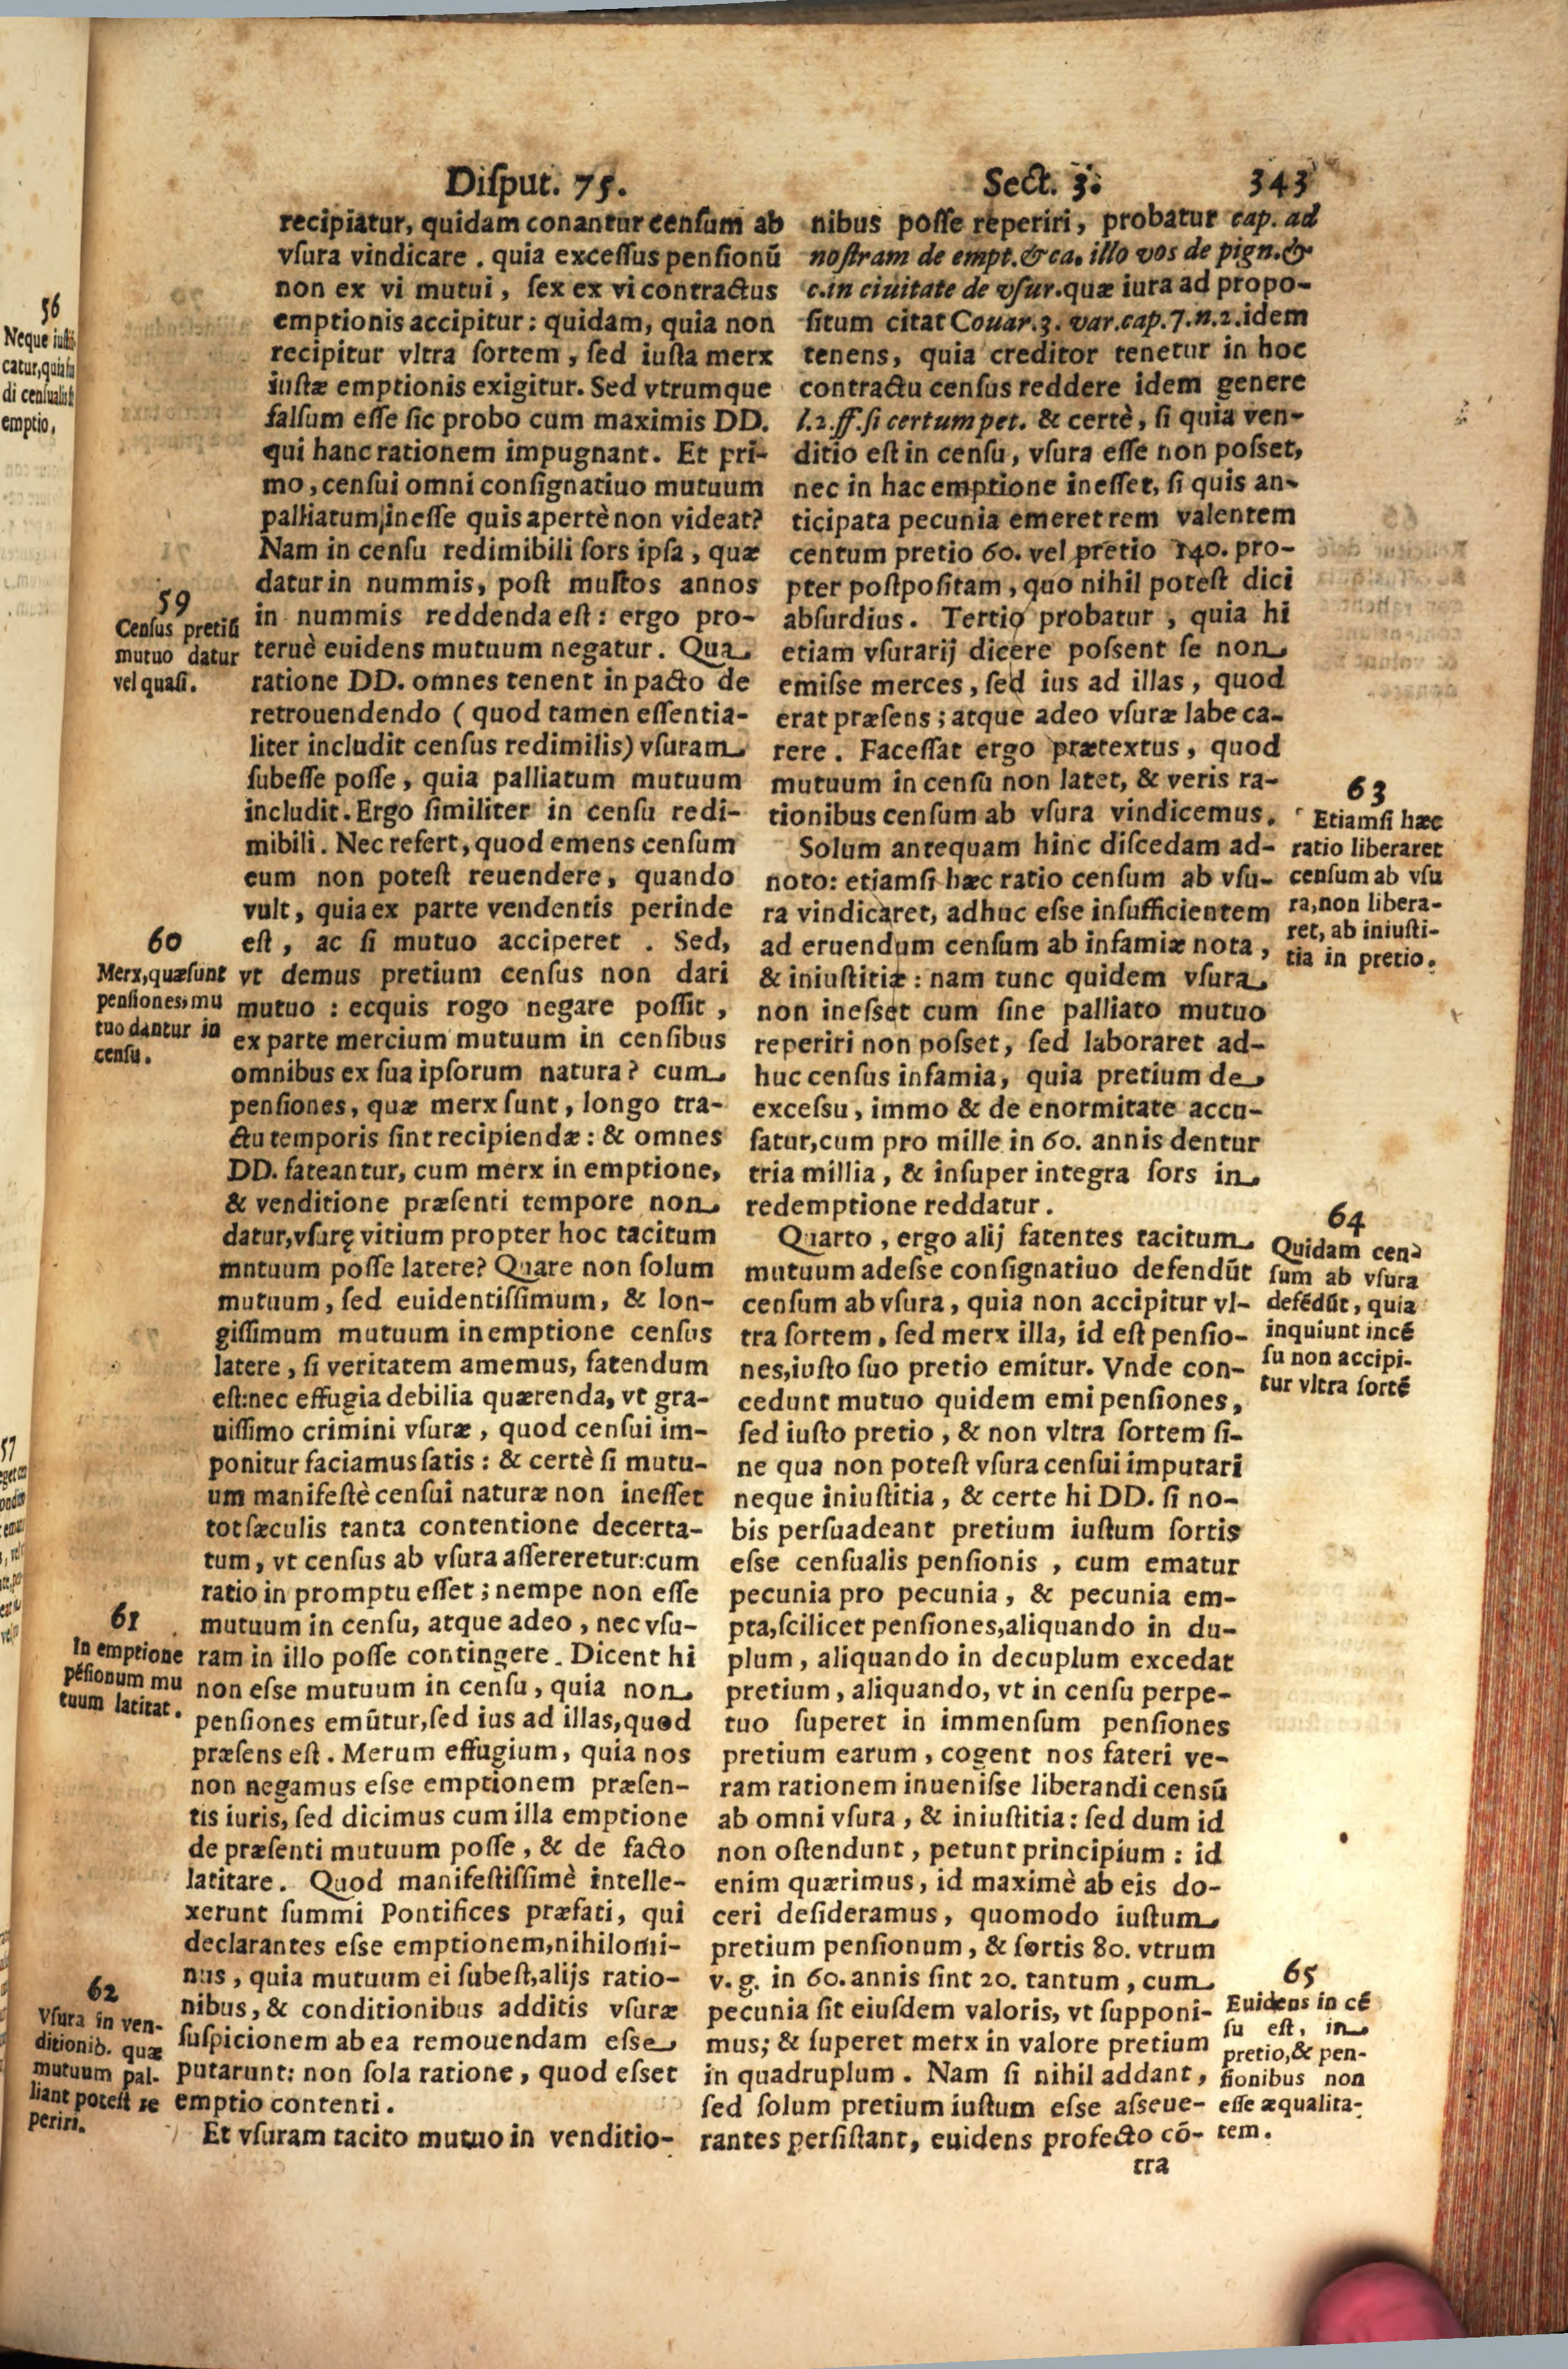 Disput. 75. Sect. 3. 343
recipiatur, quidam conantur censum ab
vsura vindicare . quia excessus pensionū
non ex vi mutui, sex ex vi contractus
emptionis accipitur: quidam, quia non
recipitur vltra sortem, sed iusta merx
iustæ emptionis exigitur. Sed vtrumque
falsum esse sic probo cum maximis DD.
qui hanc rationem impugnant. Et pri-
mo, censui omni consignatiuo mutuum
palliatum, inesse quis apertè non videat?
Nam in censu redimibili sors ipsa, quæ
datur in nummis, post multos annos
in nummis reddenda est: ergo pro-
teruè euidens mutuum negatur. Qua
ratione DD. omnes tenent in pacto de
retrouendendo (quod tamen essentia-
liter includit census redimilis) vsuram
subesse posse, quia palliatum mutuum
includit. Ergo similiter in censu redi-
mibili. Nec refert, quod emens censum
eum non potest reuendere, quando
vult, quia ex parte vendentis perinde
est, ac si mutuo acciperet . Sed,
vt demus pretium census non dari
mutuo : ecquis rogo negare possit,
ex parte mercium mutuum in censibus
omnibus ex sua ipsorum natura? cum
pensiones, quæ merx sunt, longo tra-
ctu temporis sint recipiendæ: & omnes
DD. fateantur, cum merx in emptione,
& venditione præsenti tempore non
datur, vsurę vitium propter hoc tacitum
mntuum posse latere? Quare non solum
mutuum, sed euidentissimum, & lon-
gissimum mutuum in emptione census
latere, si veritatem amemus, fatendum
est: nec effugia debilia quærenda, vt gra-
uissimo crimini vsuræ, quod censui im-
ponitur faciamus satis: & certè si mutu-
um manifestè censui naturæ non inesset
tot sæculis tanta contentione decerta-
tum, vt census ab vsura assereretur: cum
ratio in promptu esset; nempe non esse
mutuum in censu, atque adeo, nec vsu-
ram in illo posse contingere. Dicent hi
non esse mutuum in censu, quia non
pensiones emūtur, sed ius ad illas, quod
præsens est. Merum effugium, quia nos
non negamus esse emptionem præsen-
tis iuris, sed dicimus cum illa emptione
de præsenti mutuum posse, & de facto
latitare. Quod manifestissimè intelle-
xerunt summi Pontifices præfati, qui
declarantes esse emptionem, nihilomi-
nus, quia mutuum ei subest, alijs ratio-
nibus, & conditionibus additis vsuræ
suspicionem ab ea remouendam esse
putarunt: non sola ratione, quod esset
emptio contenti.
Et vsuram tacito mutuo in venditio-
56
Neque
catur, quia
di censualis
emptio,
57
59
Census pretiū
mutuo datur
vel quasi.
60
Merx, quæ sunt
pensiones, mu
tuo dantur in
censu.
61
In emptione
pēsionum mu
tuum latitat.
62
Vsura in ven-
ditionib. quæ
mutuum pal-
liant potest re
periri.
nibus posse reperiri, probatur cap. ad
nostram de empt. & ca. illo vos de pign. &
c. in ciuitate de vsur. quæ iura ad propo-
situm citat Couar. 3. var. cap. 7. n. 2. idem
tenens, quia creditor tenetur in hoc
contractu census reddere idem genere
l. 2. ff. si certum pet. & certè, si quia ven-
ditio est in censu, vsura esse non posset,
nec in hac emptione inesset, si quis an-
ticipata pecunia emeret rem valentem
centum pretio 60. vel pretio 140. pro-
pter postpositam, quo nihil potest dici
absurdius. Tertio probatur, quia hi
etiam vsurarij dicere possent se non
emisse merces, sed ius ad illas, quod
erat præsens; atque adeo vsuræ labe ca-
rere. Facessat ergo prætextus, quod
mutuum in censu non latet, & veris ra-
tionibus censum ab vsura vindicemus.
Solum antequam hinc discedam ad-
noto: etiamsi hæc ratio censum ab vsu-
ra vindicaret, adhuc esse insufficientem
ad eruendum censum ab infamiæ nota,
& iniustitiæ: nam tunc quidem vsura
non inesset cum sine palliato mutuo
reperiri non posset, sed laboraret ad-
huc census infamia, quia pretium de
excessu, immo & de enormitate accu-
satur, cum pro mille in 60. annis dentur
tria millia, & insuper integra sors in
redemptione reddatur.
Quarto, ergo alij fatentes tacitum
mutuum adesse consignatiuo defendūt
censum ab vsura, quia non accipitur vl-
tra sortem, sed merx illa, id est pensio-
nes, iusto suo pretio emitur. Vnde con-
cedunt mutuo quidem emi pensiones,
sed iusto pretio, & non vltra sortem si-
ne qua non potest vsura censui imputari
neque iniustitia, & certe hi DD. si no-
bis persuadeant pretium iustum sortis
esse censualis pensionis, cum ematur
pecunia pro pecunia, & pecunia em-
pta, scilicet pensiones, aliquando in du-
plum, aliquando in decuplum excedat
pretium, aliquando, vt in censu perpe-
tuo superet in immensum pensiones
pretium earum, cogent nos fateri ve-
ram rationem inuenisse liberandi censū
ab omni vsura, & iniustitia: sed dum id
non ostendunt, petunt principium: id
enim quærimus, id maximè ab eis do-
ceri desideramus, quomodo iustum
pretium pensionum, & sortis 80. vtrum
v. g. in 60. annis sint 20. tantum, cum
pecunia sit eiusdem valoris, vt supponi-
mus; & superet merx in valore pretium
in quadruplum. Nam si nihil addant,
sed solum pretium iustum esse asseue-
rantes persistant, euidens profecto cō-
tra
63
Etiamsi hæc
ratio liberaret
censum ab vsu
ra, non libera-
ret, ab iniusti-
tia in pretio.
64
Quidam cen-
sum ab vsura
defēdūt, quia
inquiunt incē
su non accipi-
tur vltra sortē
65
Euidens in cē
su est, in
pretio, & pen-
sionibus non
esse æqualita-
tem.